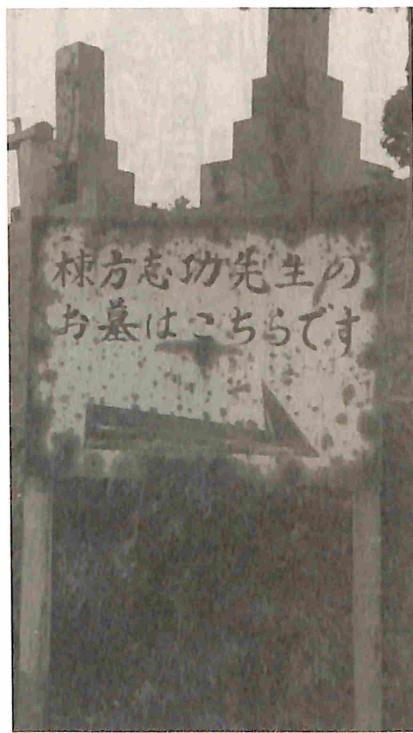 棟方志功先生の
お墓はこちらです